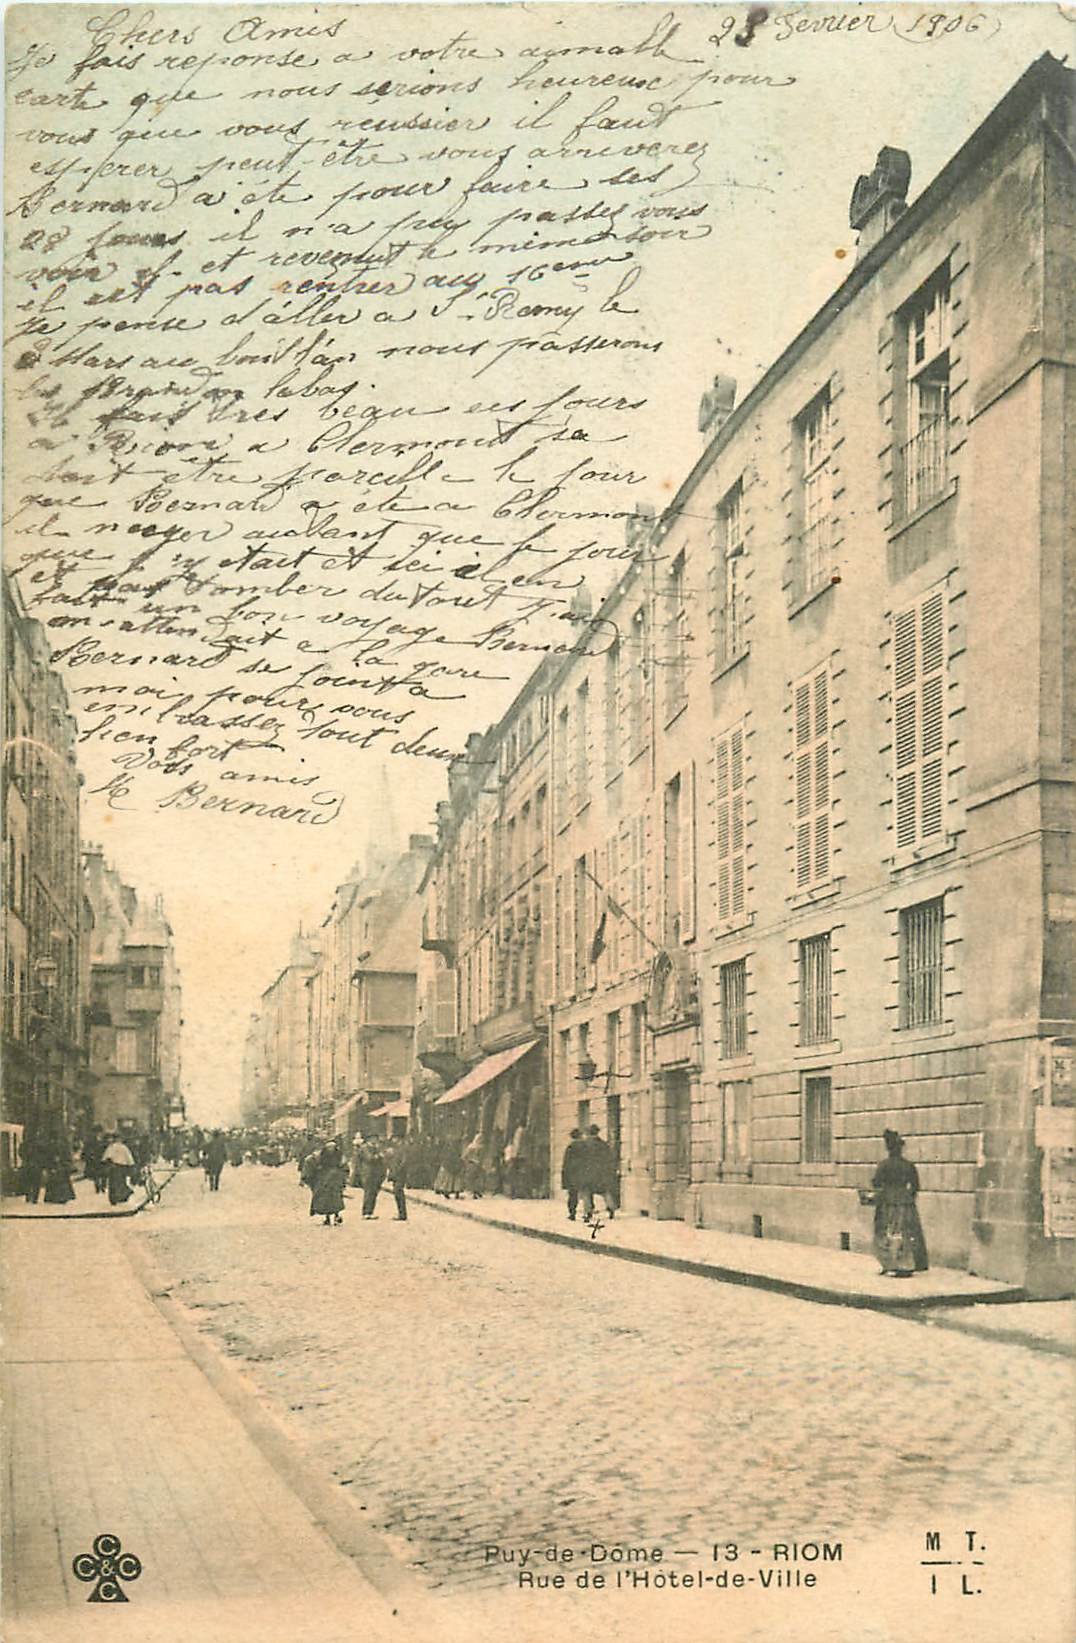 Chers Amis 23 Fevrier (1906)
Je fais reponse a votre aimable
carte que nous serions heureux pour
vous que vous réussier il faut
esperer peut-être vous arriverez
Bernard a été pour faire ses
28 jours il n'a pu passez vous
voir et revenut le mème soir
il est pas rentrer au 16eme
Je pense d'aller a St Remy le
Mars au nous passerons
labas.
fait tres beau ses jours
a Riom a Clermont sa
doit être pareille le jour
que Bernard a été a Clermont
il neger autant que le jour
que y etait et ici il en
et pas tomber du tout J'ai
fait un bon voyage Bernard
m'attendait a la gare
Bernard se joint a
moi pour vous
embrassez tout deux
bien fort
Vos amis
Bernard
Puy-de-Dôme — 13 - RIOM
Rue de l'Hôtel-de-Ville
M T.
I L.
C C & C C